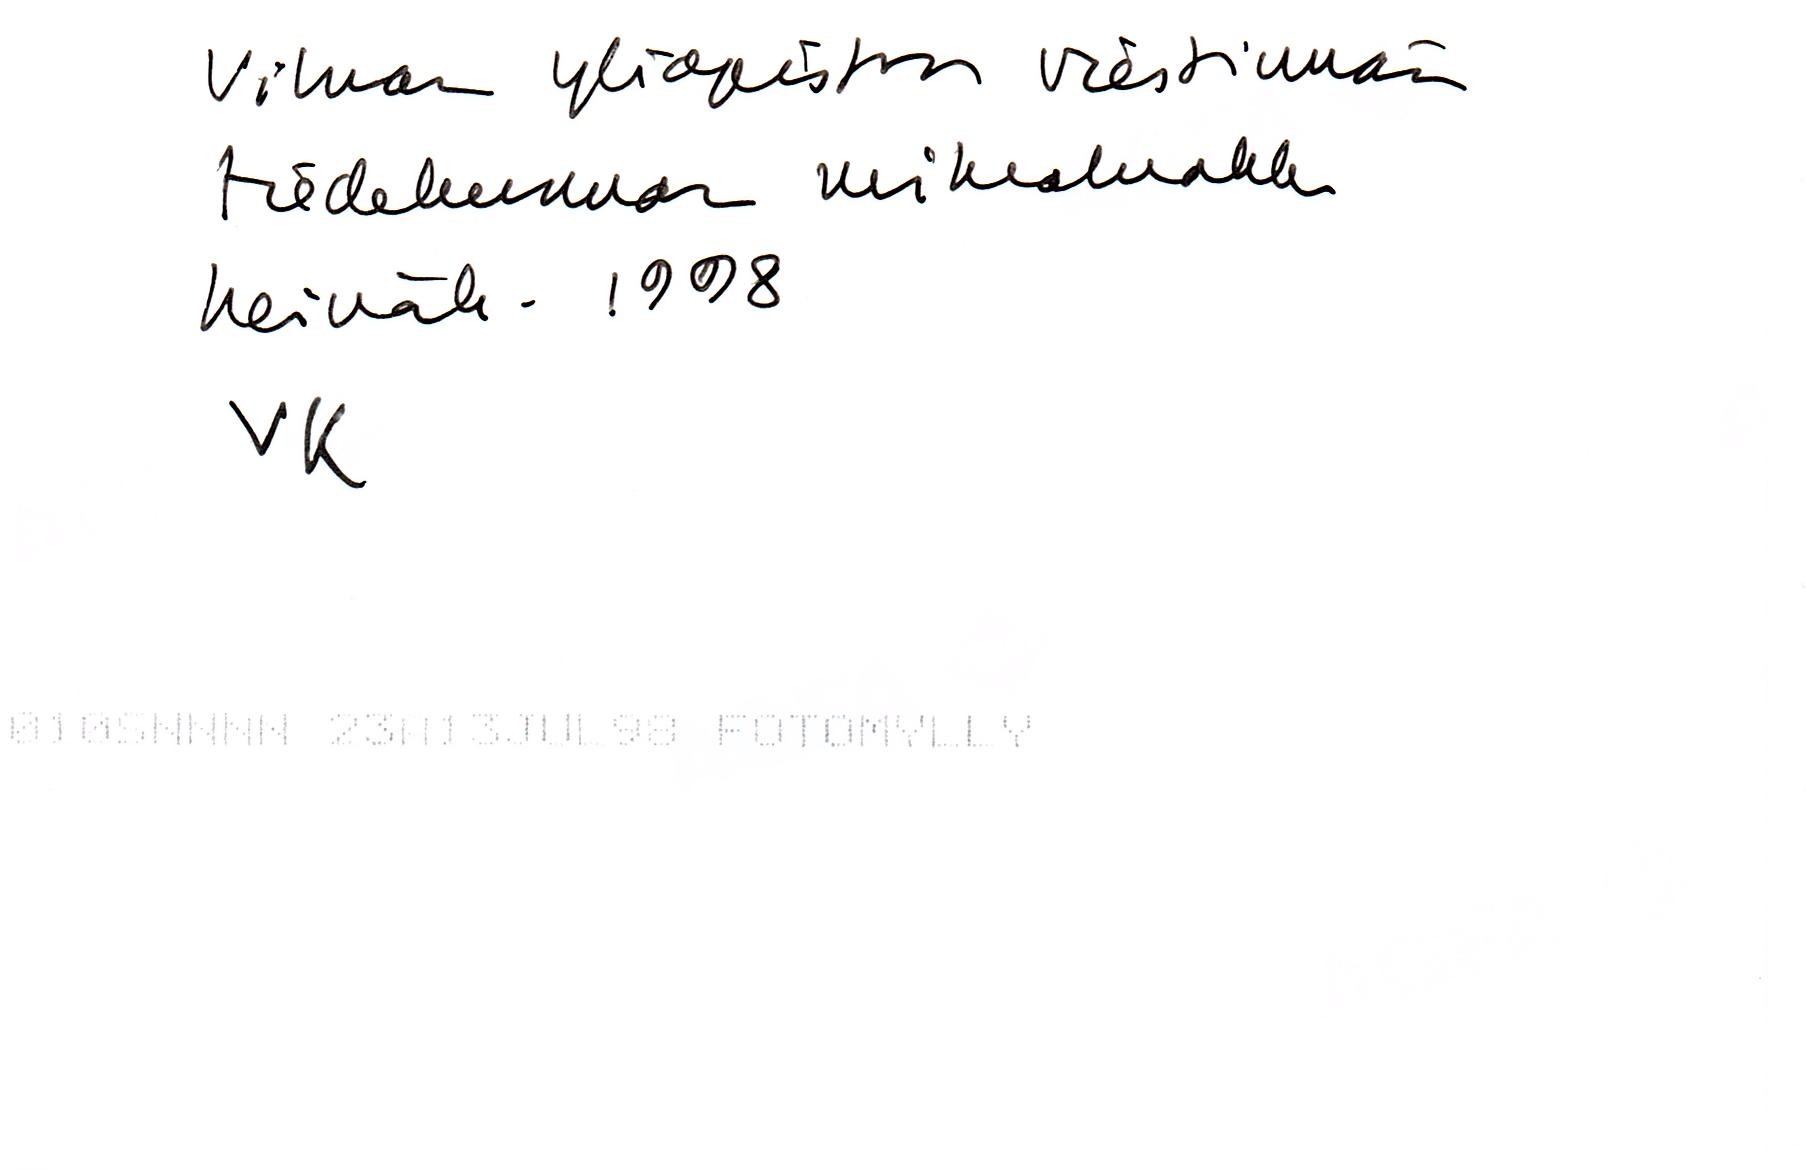 Vilnan yliopiston viestinnän
tiedekunnan
heinäk. 1998
VK
010SNNNN 23A13JUL98 FOTOMYLLY